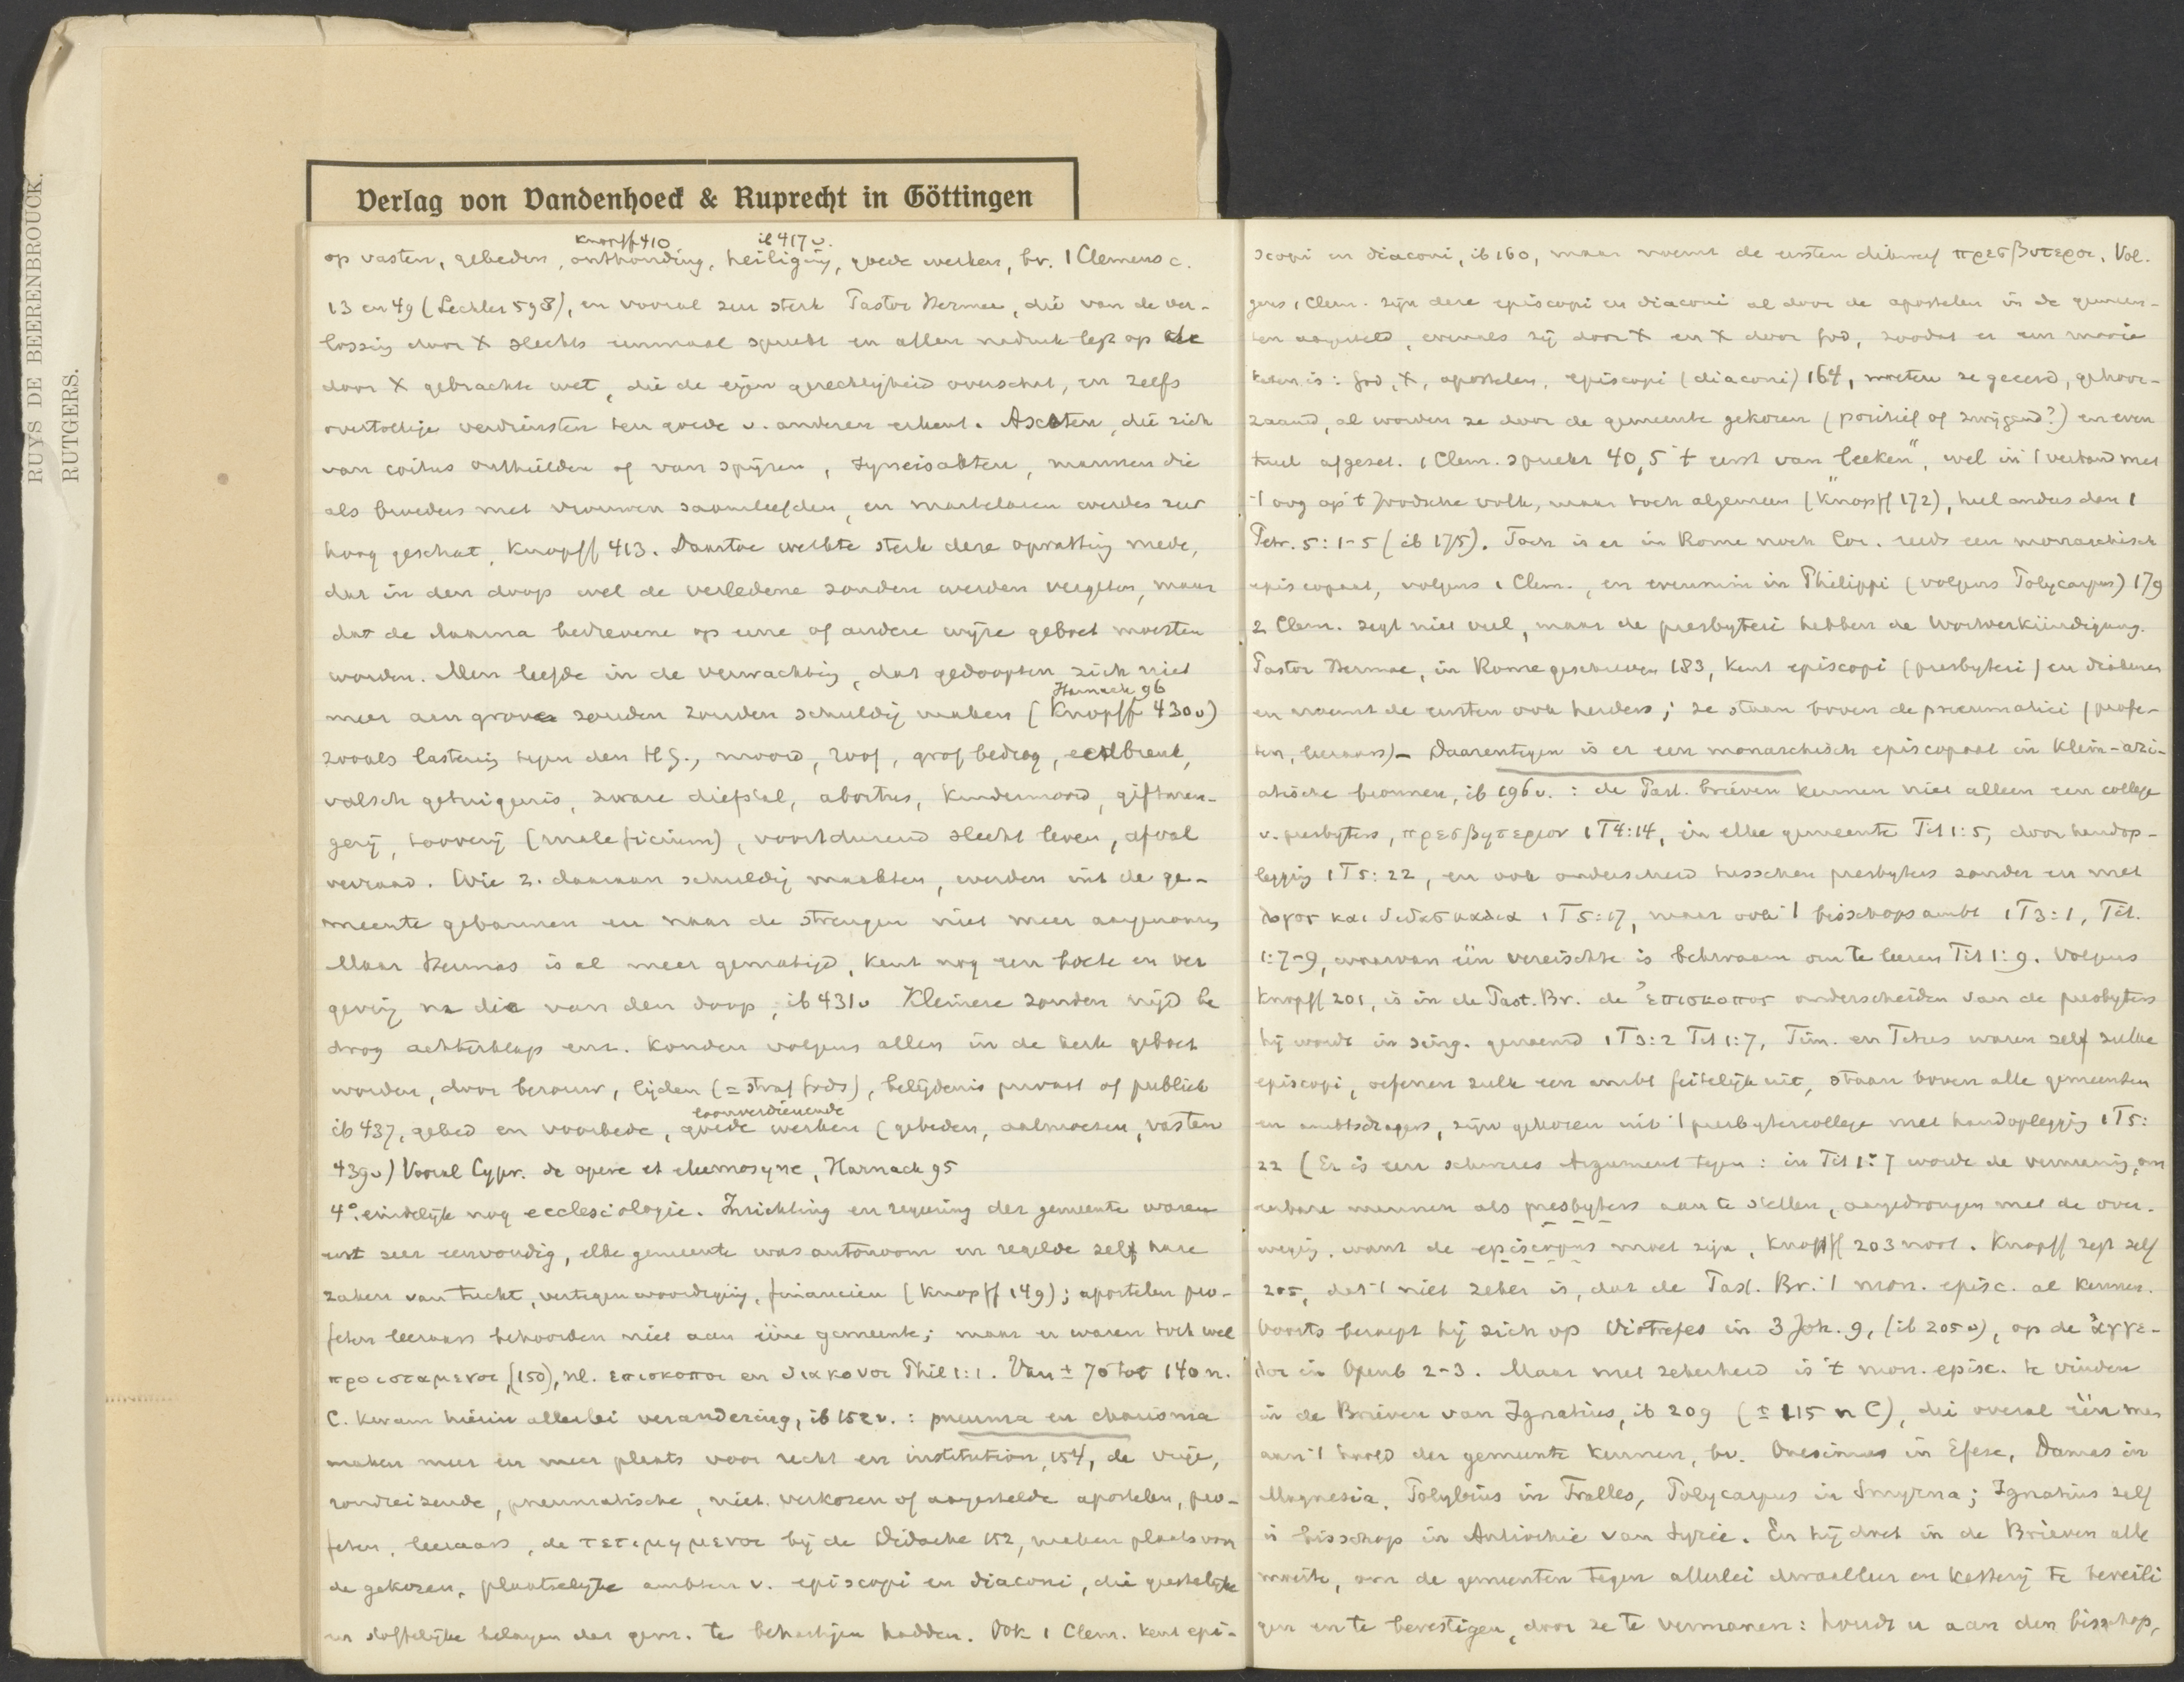 RUYS DE BEERENBROUCK.
RUTGERS.
Verlag von Vandenhoeck & Ruprecht in Göttingen
Knopff 410 ib 417 v.
op vasten, gebeden, onthouding, heiliging, goede werken, bv. 1 Clemens c.
13 en 49 (Lechler 598), en vooral zeer sterk Pastor Hermae, die van de ver-
lossing door X slechts eenmaal spreekt en allen nadruk legt op de
door X gebrachte wet, die de eigen gerechtigheid overschat, en zelfs
overtollige verdiensten ten goede v. anderen erkent. Asceten, die zich
van coitus onthielden of van spijzen, syneisakten, mannen die
als broeders met vrouwen saamleefden, en martelaren werden zeer
hoog geschat, Knopff 413. Daartoe werkte sterk deze opvatting mede,
dat in den doop wel de verledene zonden werden vergeten, maar
dat de daarna bedrevene op eene of andere wijze geboet moesten
worden. Men leefde in de verwachting, dat gedoopten zich niet
Harnack 96
meer aan grove zonden zouden schuldig maken (Knopff 430 v)
zooals lastering tegen den HG., moord, roof, grof bedrog, echtbreuk,
valsch getuigenis, zware diefstal, abortus, kindermoord, giftmen-
gerij, toovery (maleficium), voortdurend slecht leven, afval
verraad. Wie z. daaraan schuldig maakten, werden uit de ge-
meente gebannen en naar de strengen niet meer aangenomen
Maar Hermas is al meer gematigd, kent nog een boete en ver
geving na die van den doop, ib 431 v Kleinere zonden nijd be
drog achterklap enz. konden volgens allen in de kerk geboet
worden, door berouw, lijden (= straf Gods), belijdenis privaat of publiek
loonverdienende
ib 437, gebed en voorbede, goede werken (gebeden, aalmoezen, vasten
439 v) Vooral Cypr. de opere et eleemosyne, Harnack 95
4°. eindelijk nog ecclesiologie. Inrichting en regeering der gemeente waren
eerst zeer eenvoudig, elke gemeente was autonoom en regelde zelf hare
zaken van tucht, vertegenwoordiging, financien (Knopff 149); apostelen pro-
feten leeraars behoorden niet aan ééne gemeente; maar er waren toch wel
προισταμενοι, (150), nl. επισκοποι en διακονοι Phil 1:1. Van ± 70 tot 140 n.
C. kwam hierin allerlei verandering, ib 152 v. : pneuma en charisma
maken meer en meer plaats voor recht en institution, 154, de vrije,
rondreizende, pneumatische, niet verkozen of aangestelde apostelen, pro-
feten, leeraars, de τετιμημενοι bij de Didache 152, maken plaats voor
de gekozen, plaatselijke ambten v. episcopi en diaconi, die geestelijke
en stoffelijke belangen der gem. te behartigen hadden. Ook 1 Clem. kent epi-
scopi en diaconi, ib 160, maar noemt de eersten dikwijls πρεσβυτεροι. Vol-
gens 1 Clem. zijn deze episcopi en diaconi al door de apostelen in de gemeen-
ten aangesteld, evenals zij door X en X door God, zoodat er een
keten is: God, X, apostelen, episcopi (diaconi) 164, moeten ze geeerd, gehoor-
zaamd, al worden ze door de gemeente gekozen (positief of zwijgend?) en even-
tueel afgezet. 1 Clem. spreekt 40,5 't eerst van "leeken", wel in 't verband met
't oog op 't Joodsche volk, maar toch algemeen (Knopff 172), heel anders dan 1
Petr. 5:1-5 (ib 175). Toch is er in Rome noch Cor. reeds een monarchisch
episcopaat, volgens 1 Clem., en evenmin in Philippi (volgens Polycarpus) 179
2 Clem. zegt niet veel, maar de presbyteri hebben de Wortverkündigung.
Pastor Hermae, in Rome geschreven 183, kent episcopi (presbyteri) en diakenen
en noemt de eersten ook herders; ze staan boven de pneumatici (profe-
ten, leeraars) – Daarentegen is er een monarchisch episcopaat in Klein-azi-
atische bronnen, ib 196 v. : de Past. brieven kennen niet alleen een college
v. presbyters, πρεσβυτεριον 1 T 4:14, in elke gemeente Tit 1:5, door handop-
legging 1 T 5:22, en ook onderscheid tusschen presbyters zonder en met
λογος και διδασκαλια 1 T 5:17, maar ook 't bisschopsambt 1 T 3:1, Tit.
1:7-9, waarvan één vereischte is bekwaam om te leeren Tit 1:9. Volgens
Knopff 201, is in de Past. Br. de ἐπισκοπος onderscheiden van de presbyters
hij wordt in sing. genoemd 1 T 3:2 Tit 1:7, Tim. en Titus waren zelf zulke
episcopi, oefenen zulk een ambt feitelijk uit, staan boven alle gemeenten
en ambtsdragers, zijn gekozen uit 't presbytercollege met handoplegging 1 T 5:
22 (Er is een schweres Argument tegen: in Tit 1:7 wordt de vermaning, om
eerbare mannen als presbyters aan te stellen, aangedrongen met de over-
weging, want de episcopus moet zijn, Knopff 203 noot. Knopff zegt zelf
205, dat 't niet zeker is, dat de Past. Br. 't mon. episc. al kennen.
Voorts beroept hij zich op Diotrefes in 3 Joh. 9, (ib 205 v), op de ἀγγε-
λοι in Openb 2-3. Maar met zekerheid is 't mon. episc. te vinden
in de Brieven van Ignatius, ib 209 (± 115 n C), die overal één man
aan 't hoofd der gemeente kennen, bv. Onesimus in Efese, Damas in
Magnesia, Polybius in Tralles, Polycarpus in Smyrna; Ignatius zelf
is bisschop in Antiochie van Syrie. En hij doet in de Brieven alle
moeite, om de gemeenten tegen allerlei dwaalleer en ketterij te beveili
gen en te bevestigen, door ze te vermanen: houdt u aan den bisschop,